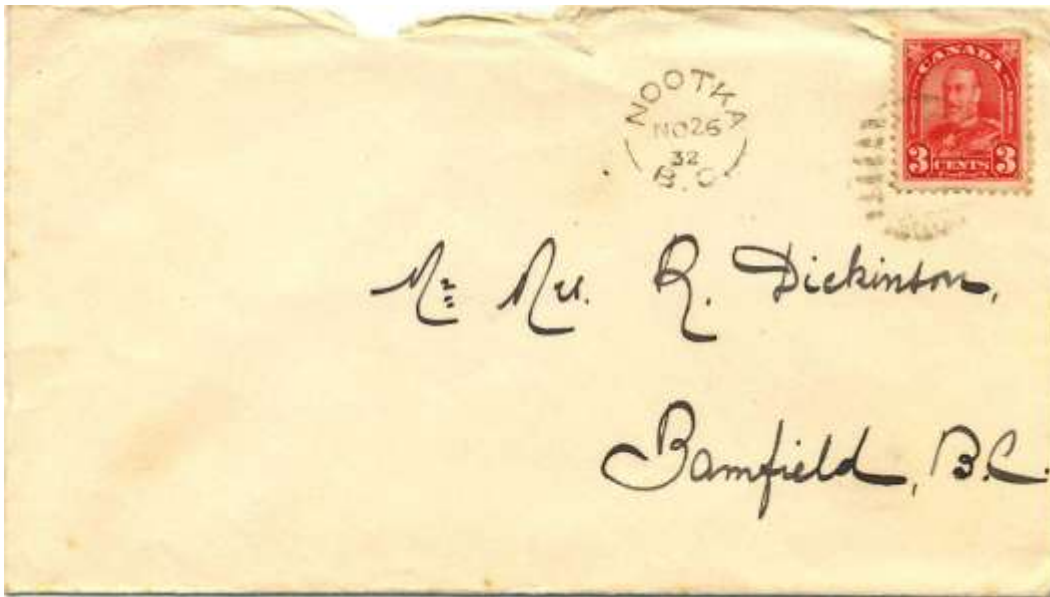 NOOTKA
NO 26
32
B.C
CANADA
3 CENTS 3
Mr Mrs. R. Dickinson,
Bamfield, B.C.